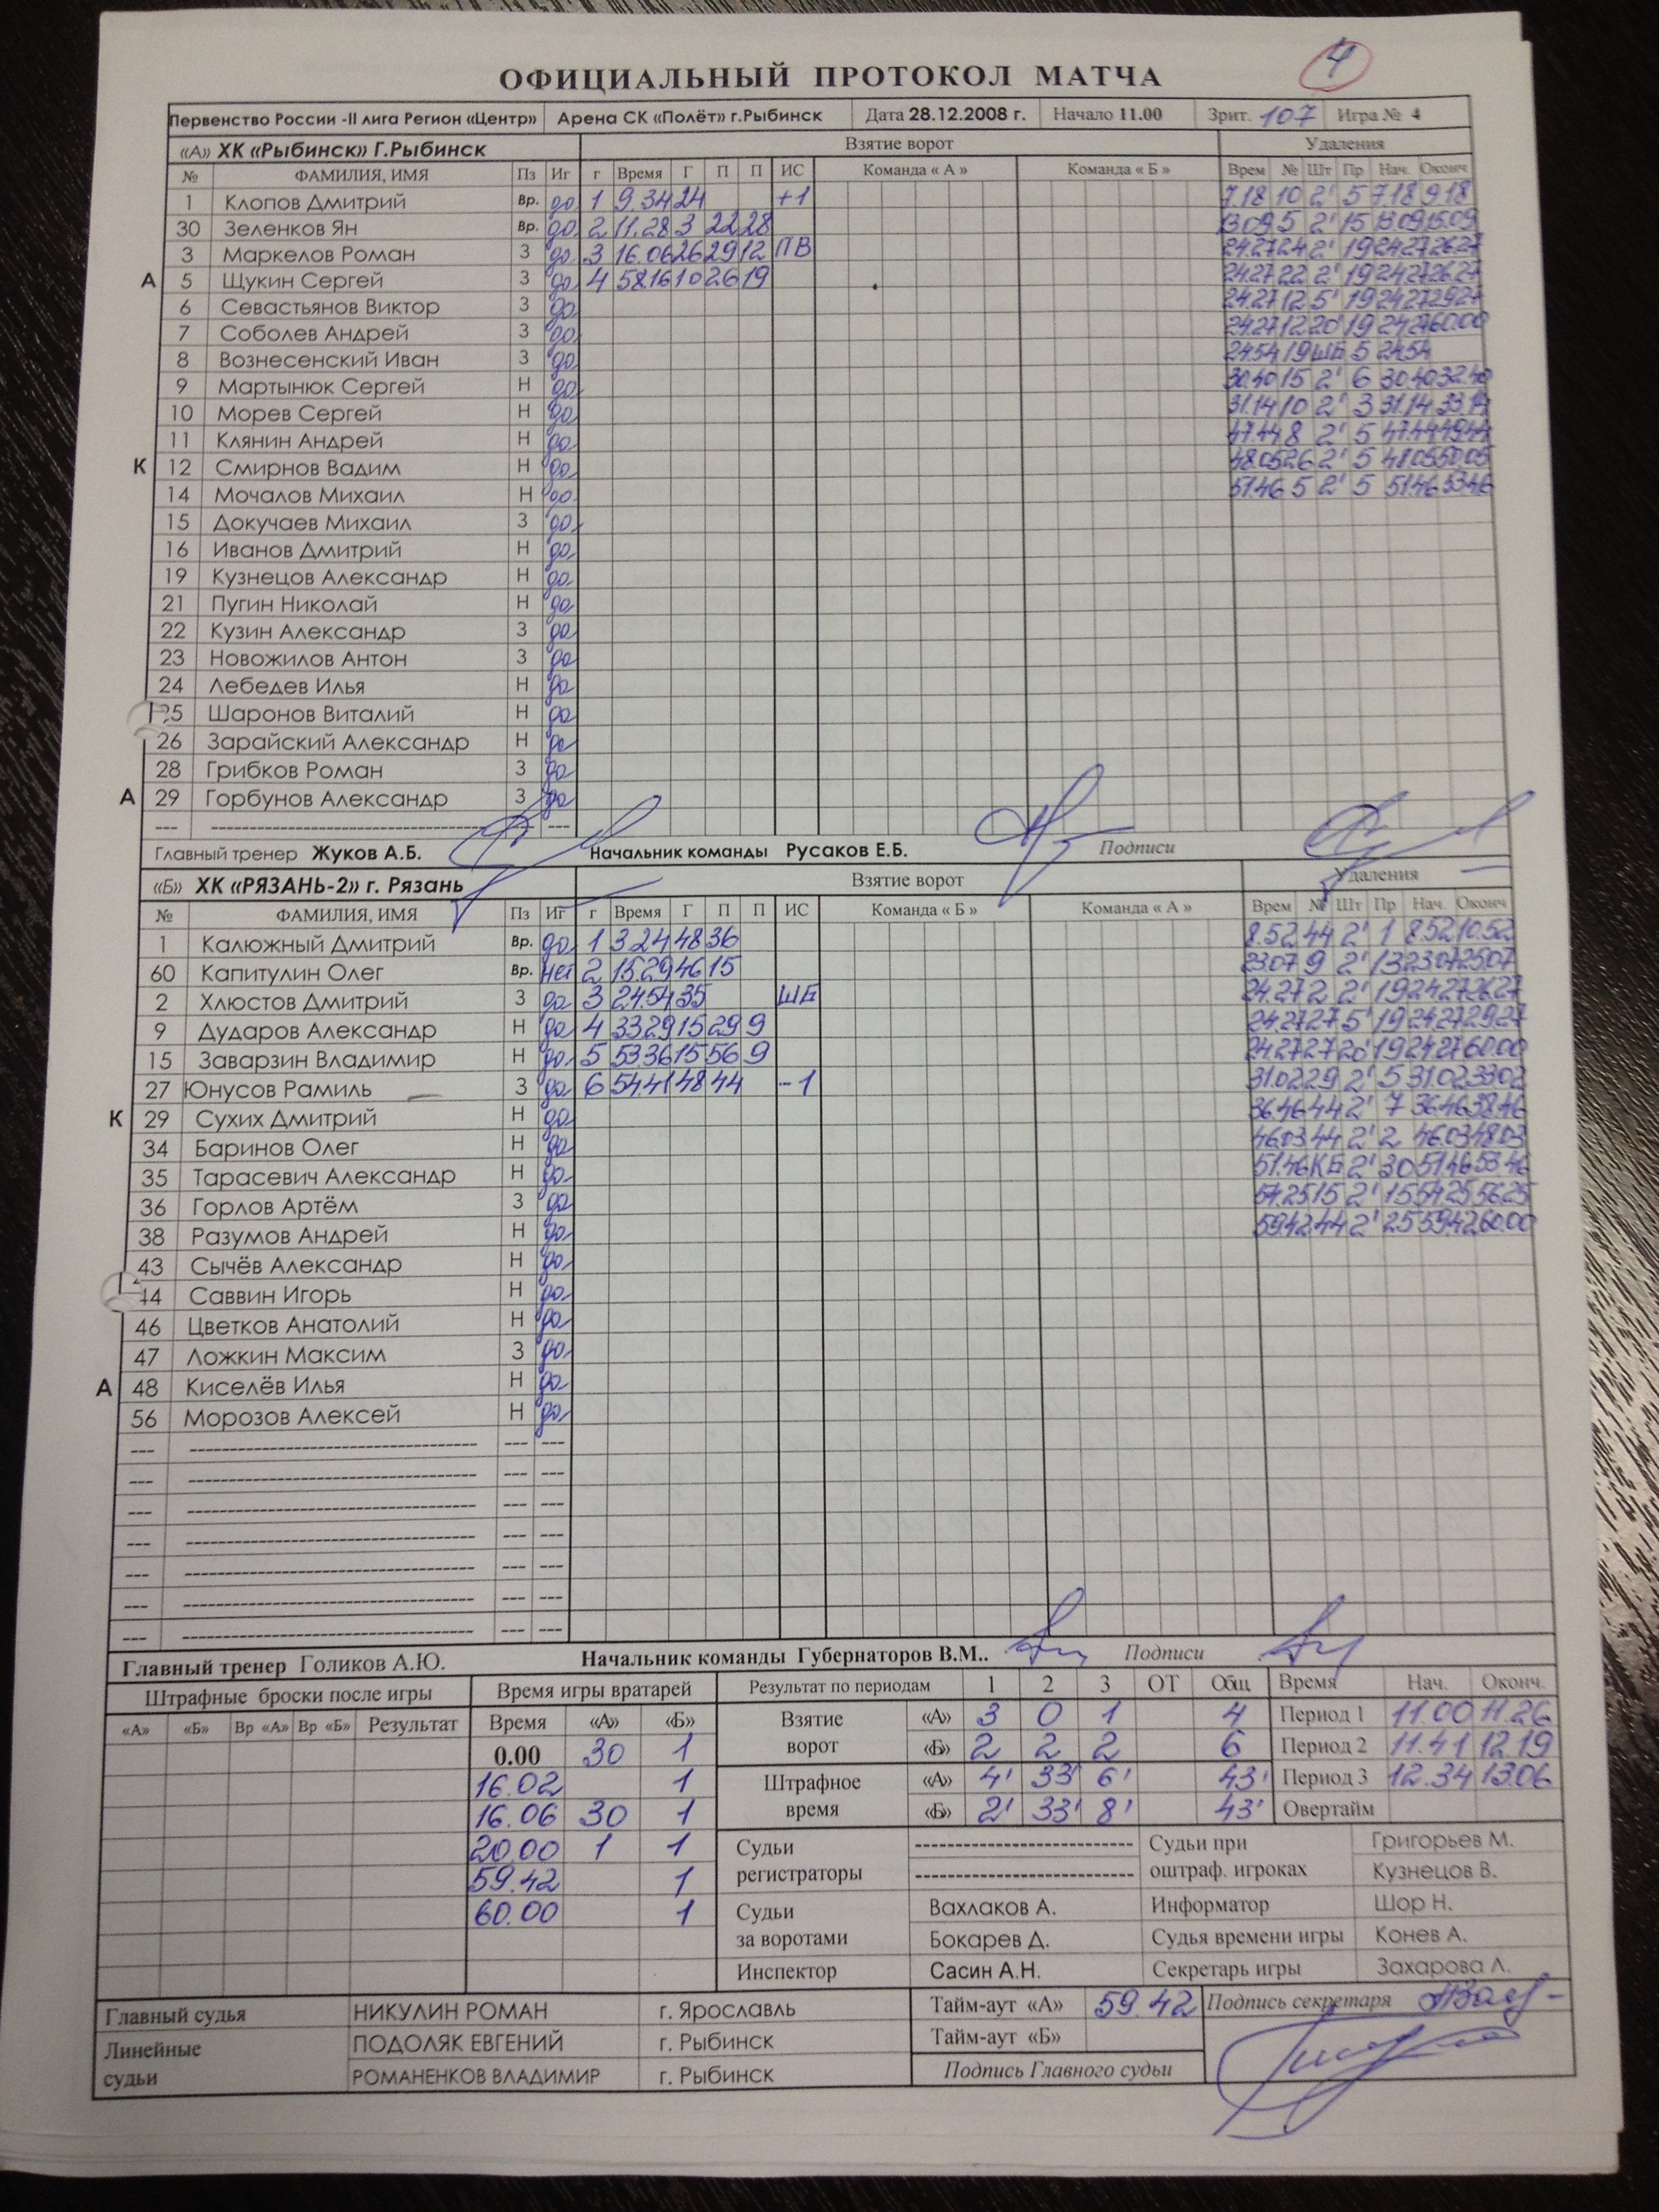 4
ОФИЦИАЛЬНЫЙ ПРОТОКОЛ МАТЧА
Первенство России -II лига Регион «Центр» Арена СК «Полёт» г.Рыбинск Дата 28.12.2008 г. Начало 11.00 Зрит. 107 Игра № 4
«А» ХК «Рыбинск» Г.Рыбинск Взятие ворот Удаления
№ ФАМИЛИЯ, ИМЯ Пз Иг г Время Г П П ИС Команда « А » Команда « Б » Врем № Шт Пр Нач. Оконч
1 Клопов Дмитрий Вр. да 1 9.34 24 +1 7.18 10 2' 5 7.18 9.18
30 Зеленков Ян Вр. да 2 11.28 3 22 28 13.09 5 2' 15 13.09 15.09
3 Маркелов Роман З да 3 16.06 26 29 12 ПВ 24.27 24 2' 19 24.27 26.27
А 5 Щукин Сергей З да 4 58.16 10 26 19 24.27 22 2' 19 24.27 26.27
6 Севастьянов Виктор З да 24.27 12 5' 19 24.27 29.27
7 Соболев Андрей З да 24.27 12 20' 19 24.27 60.00
8 Вознесенский Иван З да 24.54 19 ШБ 5 24.54
9 Мартынюк Сергей Н да 30.40 15 2' 6 30.40 32.40
10 Морев Сергей Н да 31.14 10 2' 3 31.14 33.14
11 Клянин Андрей Н да 47.44 8 2' 5 47.44 49.44
К 12 Смирнов Вадим Н да 48.05 26 2' 5 48.05 50.05
14 Мочалов Михаил Н да 51.46 5 2' 5 51.46 53.46
15 Докучаев Михаил З да
16 Иванов Дмитрий Н да
19 Кузнецов Александр Н да
21 Пугин Николай Н да
22 Кузин Александр З да
23 Новожилов Антон З да
24 Лебедев Илья Н да
25 Шаронов Виталий Н да
26 Зарайский Александр Н да
28 Грибков Роман З да
А 29 Горбунов Александр З да
--- ---------------------------------- --- ---
Главный тренер Жуков А.Б. Начальник команды Русаков Е.Б. Подписи
«Б» ХК «РЯЗАНЬ-2» г. Рязань Взятие ворот Удаления
№ ФАМИЛИЯ, ИМЯ Пз Иг г Время Г П П ИС Команда « Б » Команда « А » Врем № Шт Пр Нач. Оконч
1 Калюжный Дмитрий Вр. да 1 3.24 48 36 8.52 44 2' 1 8.52 10.52
60 Капитулин Олег Вр. нет 2 15.29 46 15 23.07 9 2' 13 23.07 25.07
2 Хлюстов Дмитрий З да 3 24.54 35 ШБ 24.27 2 2' 19 24.27 26.27
9 Дударов Александр Н да 4 33.29 15 29 9 24.27 27 5' 19 24.27 29.27
15 Заварзин Владимир Н да 5 53.36 15 56 9 24.27 27 20' 19 24.27 60.00
27 Юнусов Рамиль З да 6 54.41 48 44 -1 31.02 29 2' 5 31.02 33.02
К 29 Сухих Дмитрий Н да 36.46 44 2' 7 36.46 38.46
34 Баринов Олег Н да 46.03 44 2' 2 46.03 48.03
35 Тарасевич Александр Н да 51.46 КБ 2' 30 51.46 53.46
36 Горлов Артём З да 54.25 15 2' 15 54.25 56.25
38 Разумов Андрей Н да 59.42 44 2' 25 59.42 60.00
43 Сычёв Александр Н да
44 Саввин Игорь Н да
46 Цветков Анатолий Н да
47 Ложкин Максим З да
А 48 Киселёв Илья Н да
56 Морозов Алексей Н да
--- ---------------------------------- --- ---
--- ---------------------------------- --- ---
--- ---------------------------------- --- ---
--- ---------------------------------- --- ---
--- ---------------------------------- --- ---
--- ---------------------------------- --- ---
--- ---------------------------------- --- ---
Главный тренер Голиков А.Ю. Начальник команды Губернаторов В.М.. Подписи
Штрафные броски после игры Время игры вратарей Результат по периодам 1 2 3 ОТ Общ Время Нач. Оконч.
«А» «Б» Вр «А» Вр «Б» Результат Время «А» «Б» Взятие ворот «А» 3 0 1 4 Период 1 11.00 11.26
0.00 30 1 «Б» 2 2 2 6 Период 2 11.41 12.19
16.02 1 Штрафное время «А» 4' 33' 6' 43' Период 3 12.34 13.06
16.06 30 1 «Б» 2' 33' 8' 43' Овертайм
20.00 1 1 Судьи регистраторы -------------------------- Судьи при оштраф. игроках Григорьев М.
59.42 1 -------------------------- Кузнецов В.
60.00 1 Судьи за воротами Вахлаков А. Информатор Шор Н.
Бокарев Д. Судья времени игры Конев А.
Инспектор Сасин А.Н. Секретарь игры Захарова Л.
Главный судья НИКУЛИН РОМАН г. Ярославль Тайм-аут «А» 59.42 Подпись секретаря
Линейные судьи ПОДОЛЯК ЕВГЕНИЙ г. Рыбинск Тайм-аут «Б»
РОМАНЕНКОВ ВЛАДИМИР г. Рыбинск Подпись Главного судьи